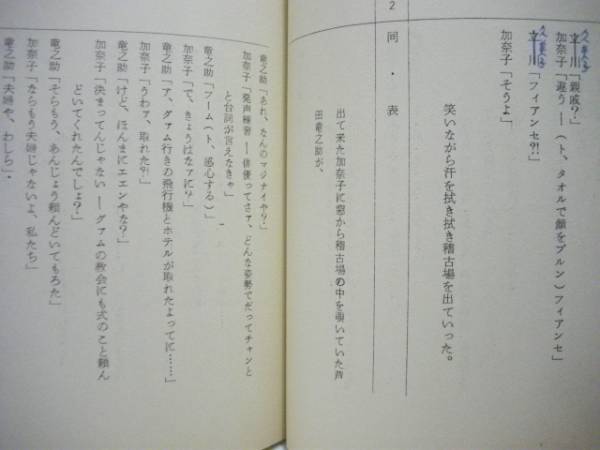 立川「親戚?」
加奈子「違うー(ト、タオルで顔をプルン)フィアンセ」
立川「フィアンセ?!」
加奈子「そうよ」
笑いながら汗を拭き拭き稽古場を出ていった。
2 同・表
出て来た加奈子に窓から稽古場の中を覗いていた芦
田竜之助が、
竜之助「あれ、なんのマジナイや?」
加奈子「発声練習ー俳優ってさァ、どんな姿勢でだってチャンと
と台詞が言えなきゃ」
竜之助「フーム(ト、感心する)」
加奈子「で、きょうはなァに?」
竜之助「ア、グァム行きの飛行機とホテルが取れたよってに……」
加奈子「うわァ、取れた?!」
竜之助「けど、ほんまにエエンやな?」
加奈子「決まってんじゃないーグァムの教会にも式のこと頼ん
どいてくれたんでしょ?」
竜之助「そらもう、あんじょう頼んどいてもろた」
加奈子「ならもう夫婦じゃないよ、私たち」
竜之助「夫婦や、わしら」